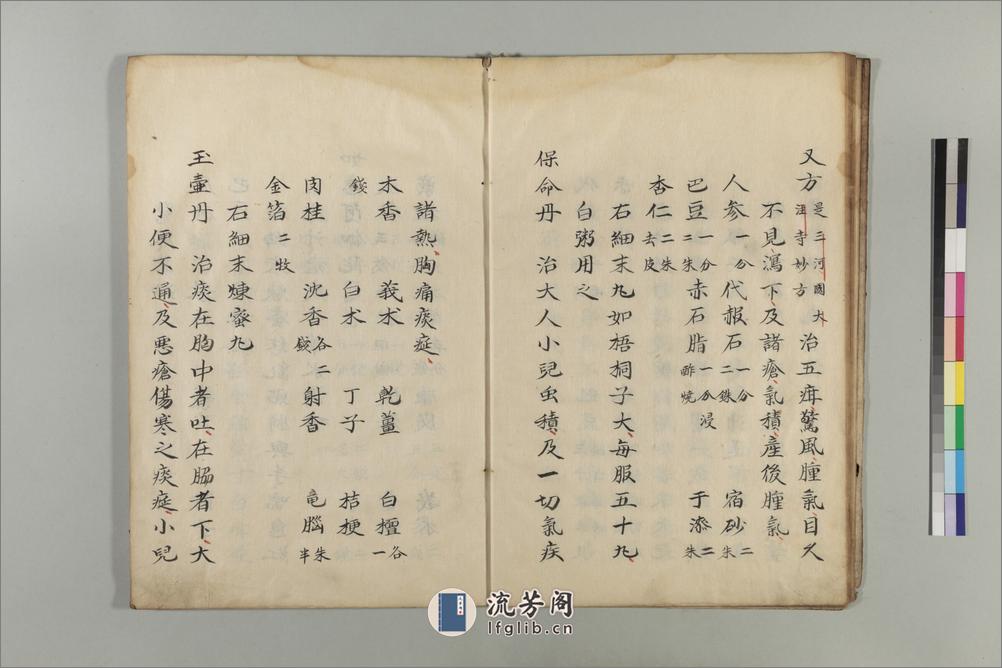 又方 是三河國大汪寺妙方 治五疳驚風腫氣目久
不見瀉下及諸瘡氣積產後腫氣
人参一分 代赭石一分二銖 宿砂二朱
巴豆一分二朱 赤石脂一分浸酢焼 于漆二朱
杏仁二朱去皮
右細末丸如梧桐子大每服五十丸
白粥用之
保命丹 治大人小兒虫積及一切氣疾
諸熱胸痛痰涎
木香 莪朮 乾薑 白檀各一
錢 白朮 丁子 桔梗
肉桂 沈香各二錢 射香 竜腦朱半
金箔二枚
右細末煉蜜丸
玉壷丹 治痰在胸中者吐在脇者下大
小便不通及悪瘡傷寒之痰涎小兒
流芳阁
lfglib.cn